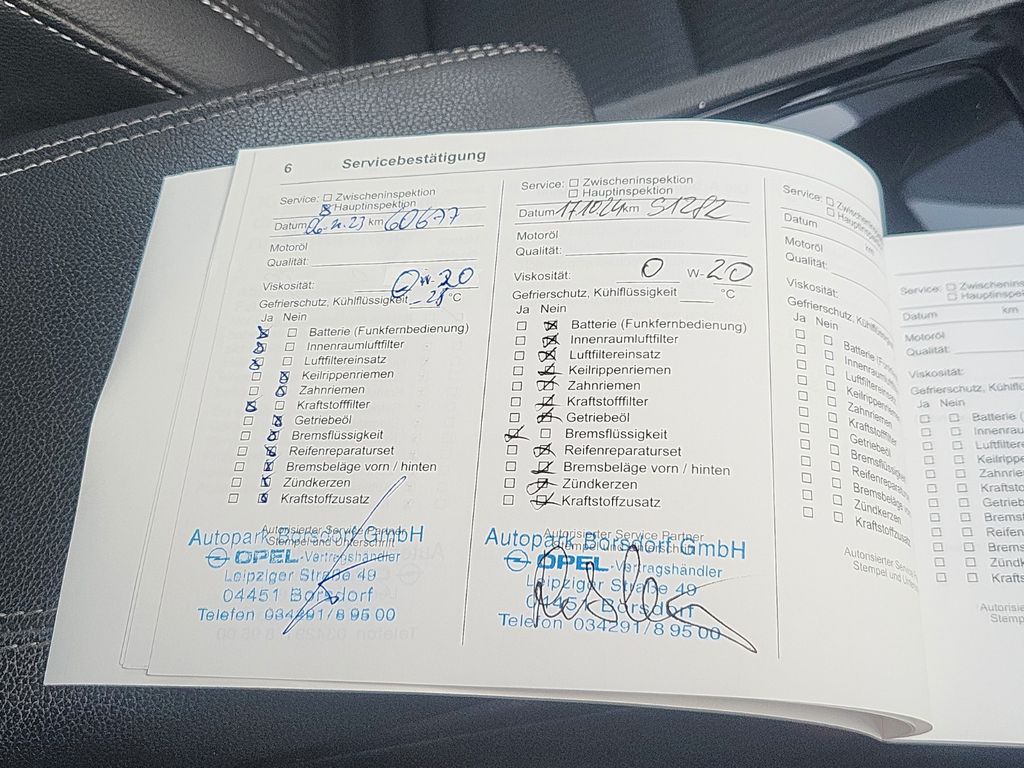 6 Servicebestätigung
Service: Zwischeninspektion
Hauptinspektion
Datum km 60677
Motoröl
Qualität:
Viskosität: 0 W-20
Gefrierschutz, Kühlflüssigkeit -28 °C
Ja Nein
Batterie (Funkfernbedienung)
Innenraumluftfilter
Luftfiltereinsatz
Keilrippenriemen
Zahnriemen
Kraftstofffilter
Getriebeöl
Bremsflüssigkeit
Reifenreparaturset
Bremsbeläge vorn / hinten
Zündkerzen
Kraftstoffzusatz
Autorisierter Service Partner
Stempel und Unterschrift
Autopark Borsdorf GmbH
OPEL-Vertragshändler
Leipziger Straße 49
04451 Borsdorf
Telefon 034291/8 95 00
Service: Zwischeninspektion
Hauptinspektion
Datum 171024 km 51282
Motoröl
Qualität:
Viskosität: 0 W-20
Gefrierschutz, Kühlflüssigkeit °C
Ja Nein
Batterie (Funkfernbedienung)
Innenraumluftfilter
Luftfiltereinsatz
Keilrippenriemen
Zahnriemen
Kraftstofffilter
Getriebeöl
Bremsflüssigkeit
Reifenreparaturset
Bremsbeläge vorn / hinten
Zündkerzen
Kraftstoffzusatz
Autorisierter Service Partner
Stempel und Unterschrift
Autopark Borsdorf GmbH
OPEL-Vertragshändler
Leipziger Straße 49
04451 Borsdorf
Telefon 034291/8 95 00
Service: Zwischeninspektion
Hauptinspektion
Datum km
Motoröl
Qualität:
Viskosität:
Gefrierschutz, Kühlflüssig
Ja Nein
Batterie (Funk
Innenraumluft
Luftfiltereinsatz
Keilrippenriemen
Zahnriemen
Kraftstofffilter
Getriebeöl
Bremsflüssigkeit
Reifenreparatur
Bremsbeläge
Zündkerzen
Kraftstoffzusatz
Autorisierter Service
Stempel und Unter
Service: Zwischeninspektion
Hauptinspektion
Datum km
Motoröl
Qualität:
Viskosität:
Gefrierschutz, Kühlflüssi
Ja Nein
Batterie (
Innenraum
Luftfilter
Keilripp
Zahnrie
Kraftsto
Getrieb
Bremsf
Reifenr
Bremsb
Zündk
Krafts
Autorisie
Stemp